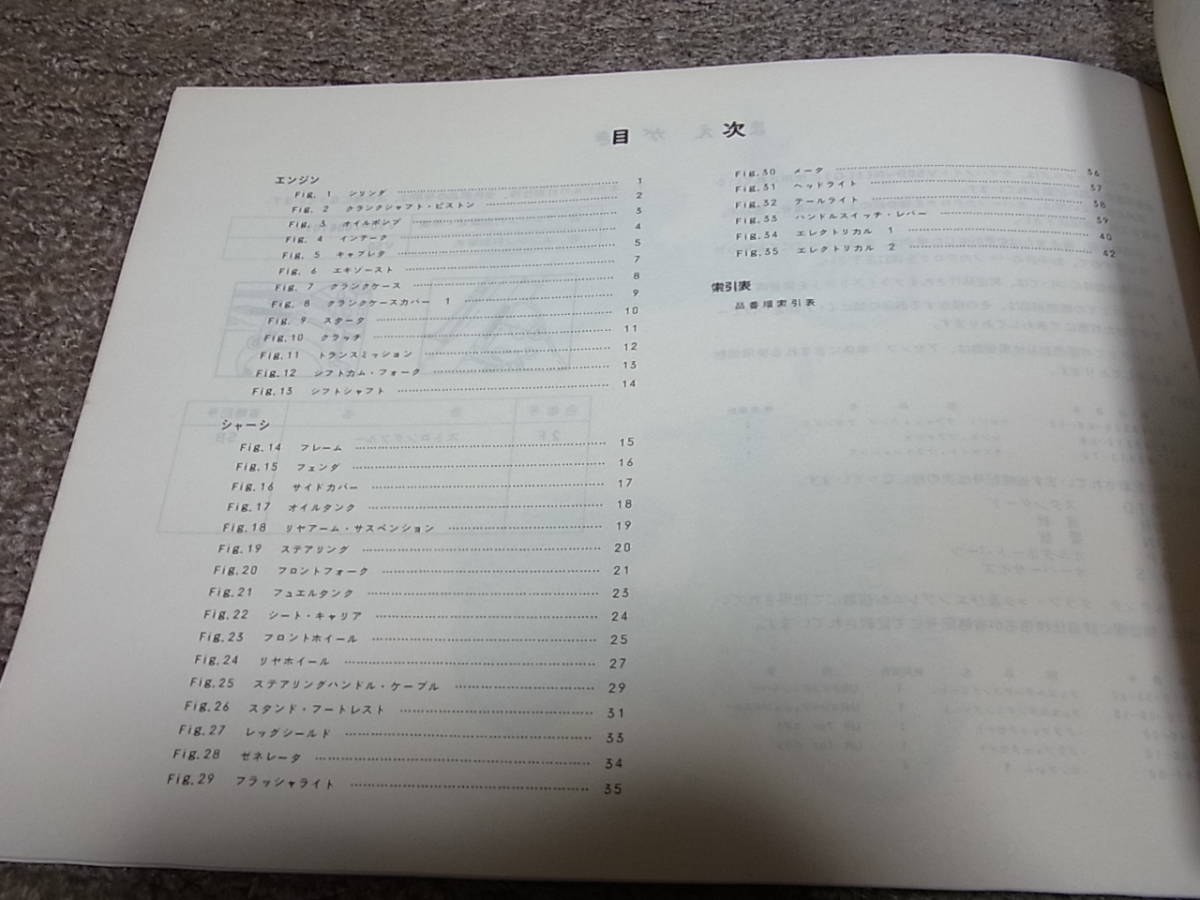 目 次
エンジン
Fig. 1 シリンダ 1
Fig. 2 クランクシャフト・ピストン 2
Fig. 3 オイルポンプ 3
Fig. 4 インテーク 4
Fig. 5 キャブレタ 5
Fig. 6 エキゾースト 7
Fig. 7 クランクケース 8
Fig. 8 クランクケースカバー 1 9
Fig. 9 スタータ 10
Fig.10 クラッチ 11
Fig.11 トランスミッション 12
Fig.12 シフトカム・フォーク 13
Fig.13 シフトシャフト 14
シャーシ
Fig.14 フレーム 15
Fig.15 フェンダ 16
Fig.16 サイドカバー 17
Fig.17 オイルタンク 18
Fig.18 リヤアーム・サスペンション 19
Fig.19 ステアリング 20
Fig.20 フロントフォーク 21
Fig.21 フュエルタンク 23
Fig.22 シート・キャリア 24
Fig.23 フロントホイール 25
Fig.24 リヤホイール 27
Fig.25 ステアリングハンドル・ケーブル 29
Fig.26 スタンド・フートレスト 31
Fig.27 レッグシールド 33
Fig.28 ゼネレータ 34
Fig.29 フラッシャライト 35
Fig.30 メータ 36
Fig.31 ヘッドライト 37
Fig.32 テールライト 38
Fig.33 ハンドルスイッチ・レバー 39
Fig.34 エレクトリカル 1 40
Fig.35 エレクトリカル 2 42
索引表
品番順索引表